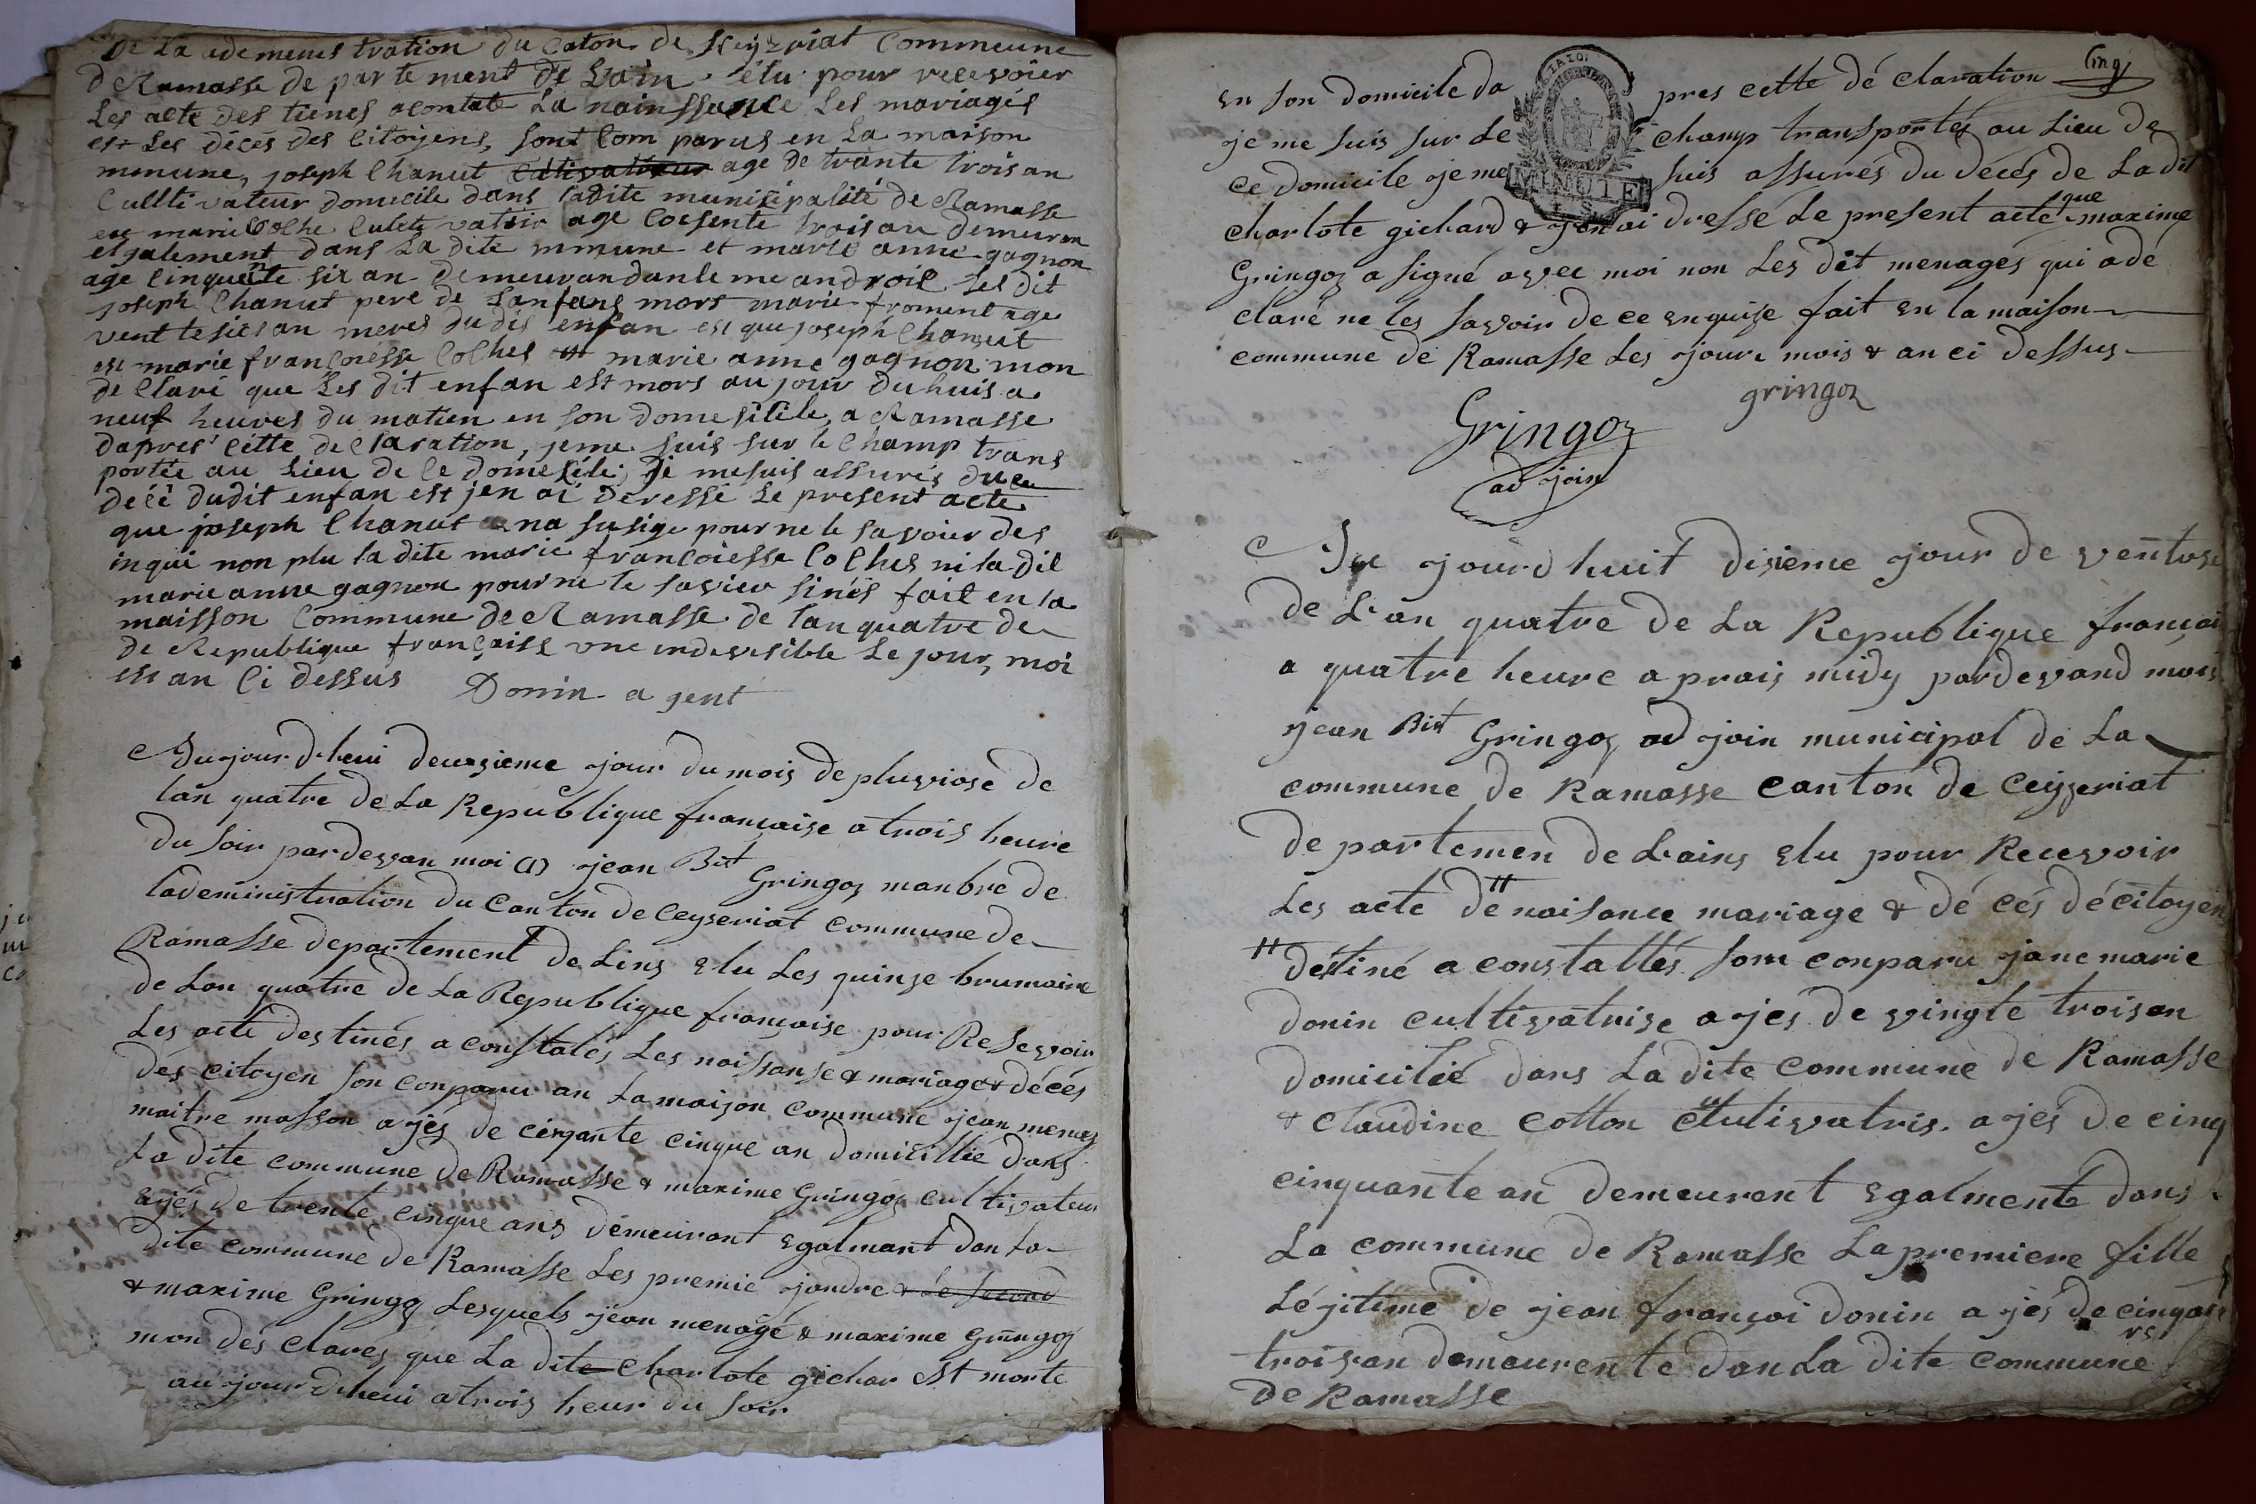 De la ademenistration du Caton de Seyzriat Commeune
De Ramasse de par te ment de Lain élu pour recevoier
les acte des tienes acontate La nainssance les mariages
est les décés des Citoyens, sont Com parus en la maison
mmune, joseph Chanut Cultivateur age de trante troisan
Cullti vateur domicile dans ladite municipalité de Ramasse
age Cinquente six an demeurandanle me androit les dit
joseph Chanut pere de Lanfans mors marie froment age
vent te sicsan meres dudis enfan est que joseph Chanut
est marie francoiesse Colhes est marie anne gagnon mon
de Claré que les dit enfan est mors au jour duhuis a
neuf heures du matien en son domesilile a Ramasse
dapres cette de Claration, jeme suis sur le Champ trans
portée au Lieu de Ce domesile, je mesuis assurés du
décé dudit enfan est jen ai deressé le present acte
que joseph Chanut na susige pour ne le savoier des
inqui non plu la dite marie francoiesse Colhes ni la dit
marie anne gagnon pour ne le savier sinés fait en la
maisson Commune de Ramasse de lan quatre de
de Republique française une indevesible Le jour, moi
est an Ci dessus
Donin agent
Aujourdheui deuxsieme jour du mois de pluviose de
lan quatre de La Republique française a trois heure
du soir pardevan moi (1) jean Bist Gringoz manbre de
ladeministration du Canton de Ceyseriat commune de
Ramasse departement de Lins elu Les quinze brumaire
de Lan quatre de La Republique française pour Resevoir
Les acte destinés a constalés Les naissanse & mariage & décés
des citoyen son conparu an La maison commune jean menag
maitre masson ajés de cinqante cinque an domicillié dans
La dite commune de Ramasse & maxime Gringoz cultivateur
ajés de trente cinque ans demeurant egalmant dan la
dite commune de Ramasse Les premie jandre & le second
& maxime Gringoz Lesquels jean menagé & maxime Gringoz
mon des clarés que La dite Charlote gichar est morte
au jourdheui a trois heur du soir
Cinq
en son domicile da pres cette dé claration
je me suis sur Le champ transportés au Lieu de
ce domicile je me suis assurés du décés de La dit
MINUTE
charlote gichard & jen ai dressé Le present acte que maxime
Gringoz a signé avec moi non Les dit menagés qui a dé
claré ne les savoir de ce enquise fait en la maison
commune de Ramasse Les jour mois & an ci dessus
gringoz
Gringoz
ad join
Au jourdhuit disieme jour de ventose
de L'an quatre de La Republique françai
a quatre heure a prais midy pardevand moi
jean Bist Gringoz ad join municipal de La
commune de Ramasse canton de Ceyzeriat
de partemen de L'ains elu pour Recevoir
Les acte de naisance mariage & dé cés dé citoyen
destiné a constallés som conparu jane marie
donin cultivatrise ajés de vingte troisan
domiciliée dans La dite commune de Ramasse
& claudine cotton cultivatris. ajés de cinq
cinquante an demeurent egalmente dans
La commune de Ramasse La premiere fille
Léjitime de jean françoi donin ajés de cinqan
troisan demeurente dan La dite commune
de Ramasse